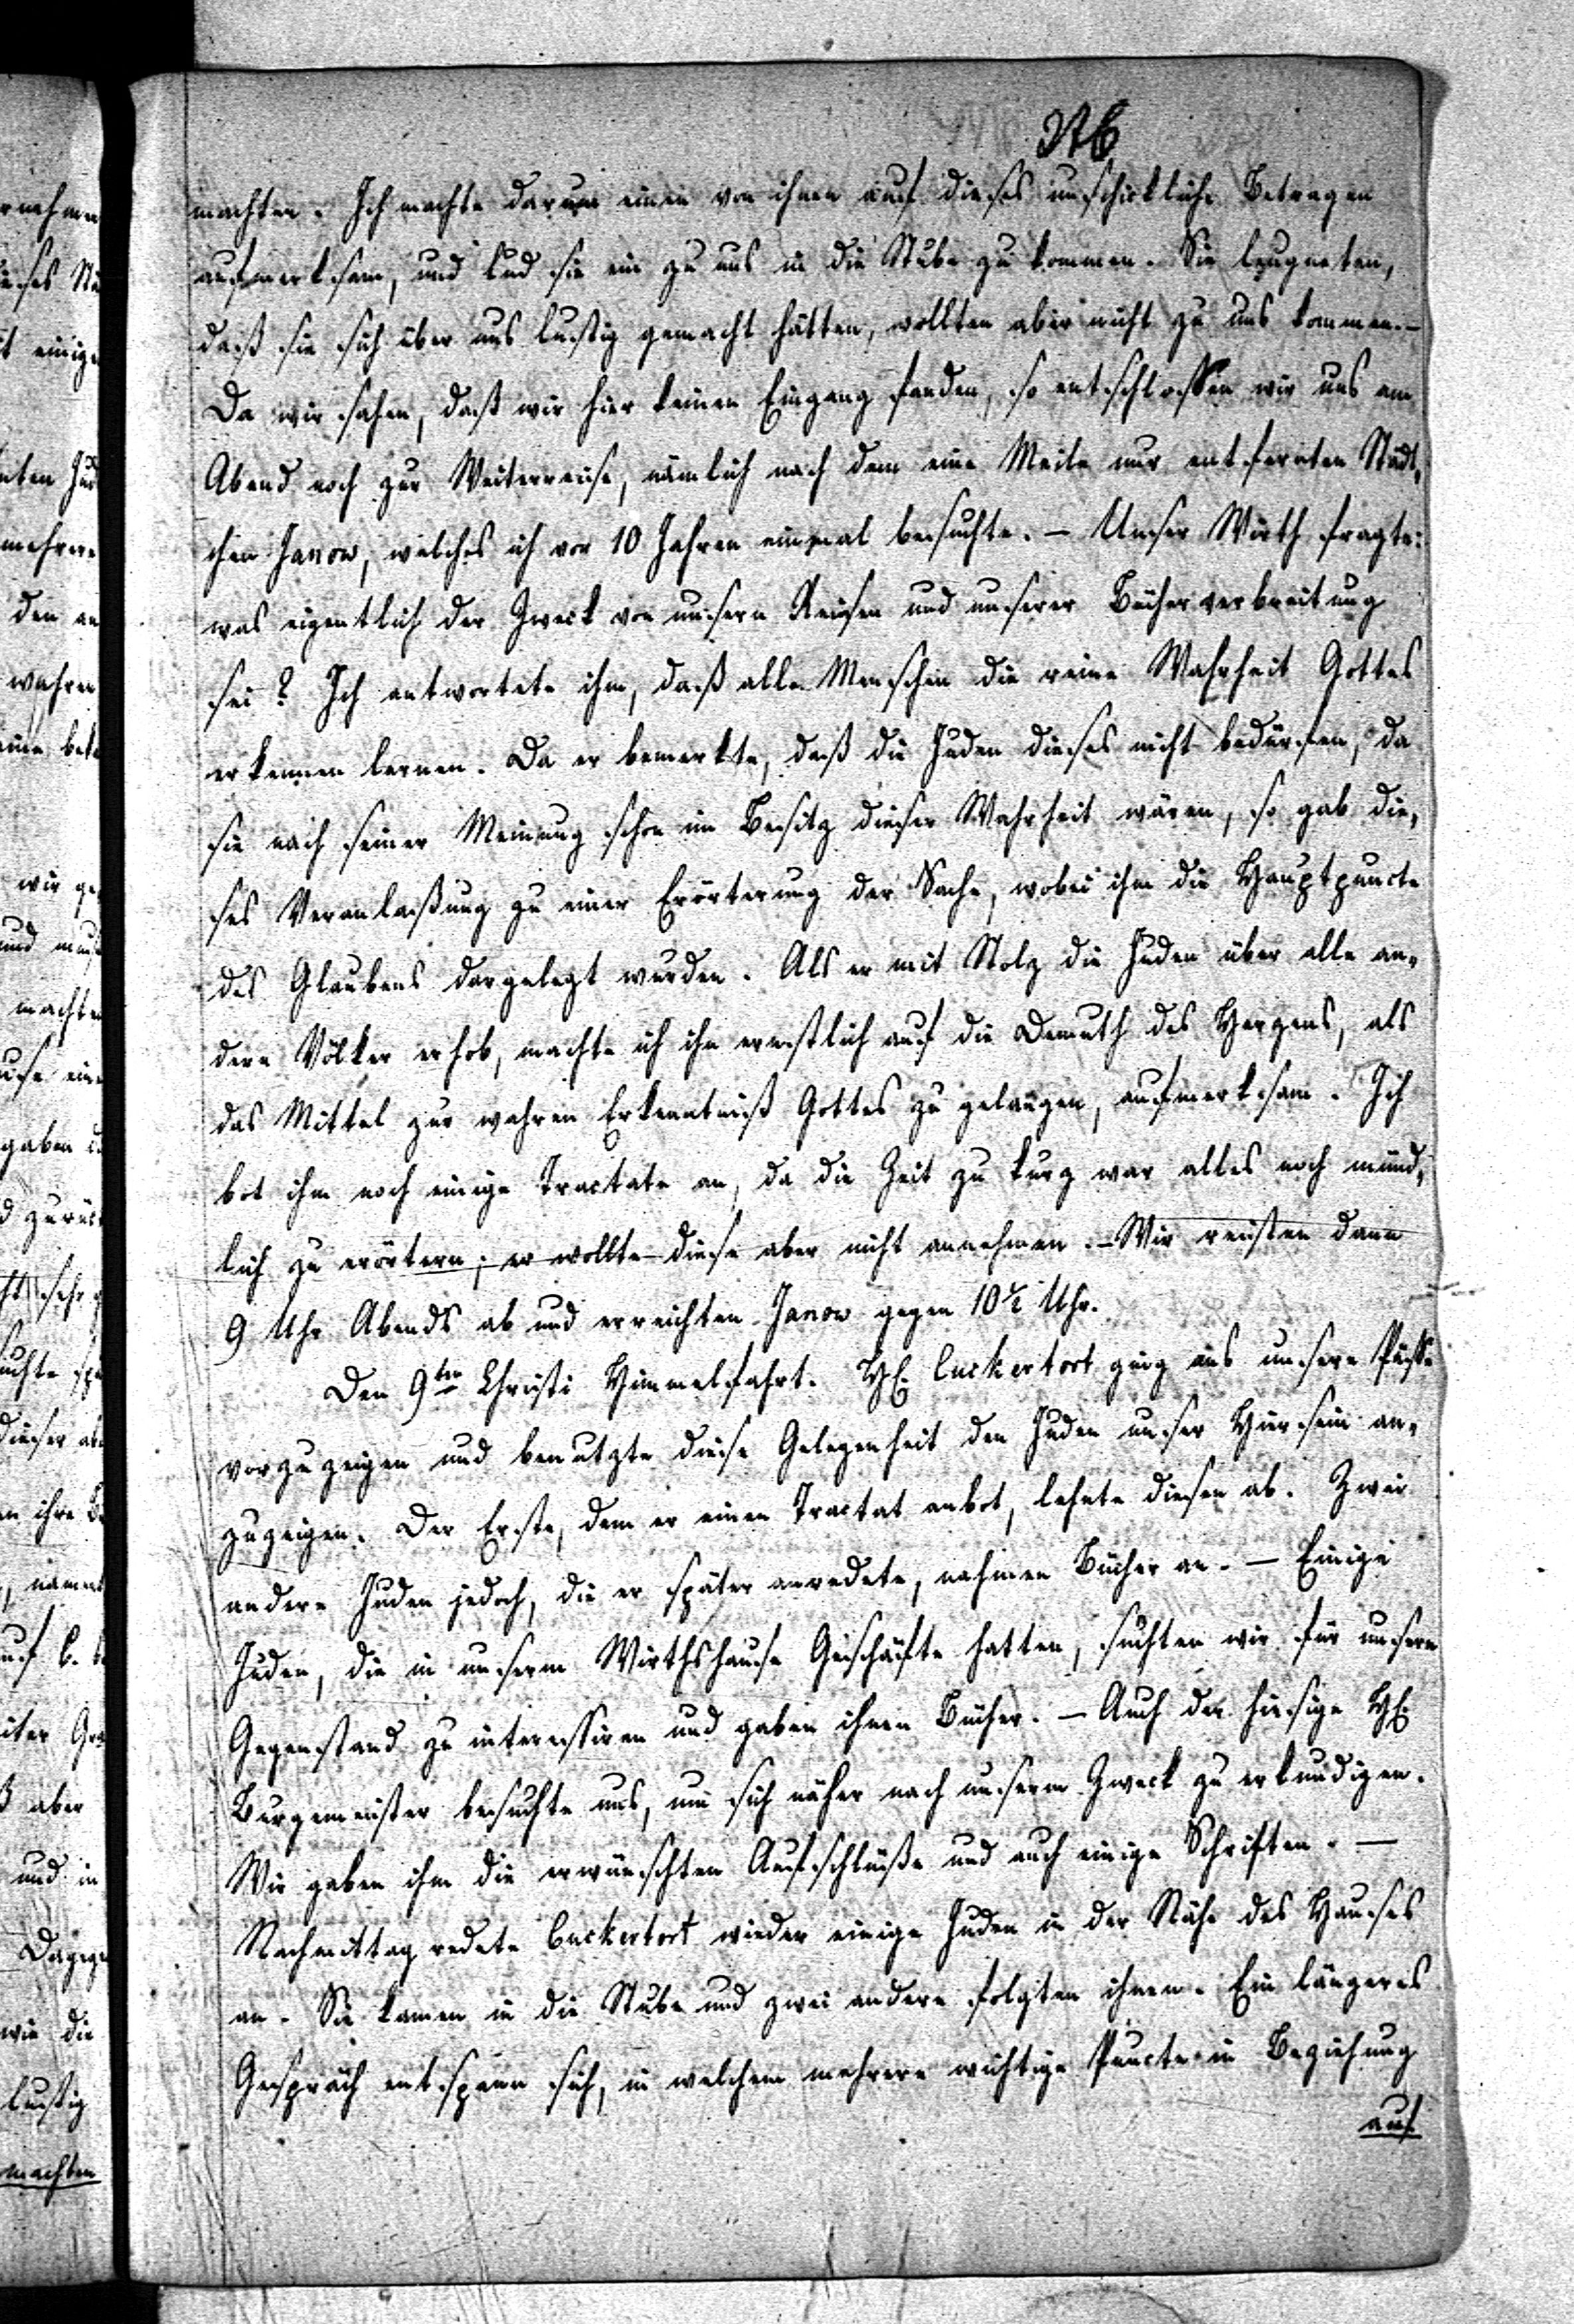 machten. Ich machte darum einen von ihnen auf dieses unschickliche Betragen
aufmerksam, und lud sie ein zu uns in die Stube zu kommen. Sie leugneten,
daß sie sich über uns lustig gemacht hätten, wollten aber nicht zu uns kommen. –
Da wir sahen, daß wir hier keinen Eingang fanden, so entschlossen wir uns am
Abend noch zur Weiterreise, nämlich nach dem eine Meile nur entfernten Städt-
chen Janow, welches ich vor 10 Jahren einmal besuchte. – Unser Wirth fragte:
was eigentlich der Zweck von unsern Reisen und unserer Bücherverbreitung
sei? Ich antwortete ihm, daß alle Menschen die reine Wahrheit Gottes
erkennen lernen. Da er bemerkte, daß die Juden dieses nicht bedürfen, da
sie nach seiner Meinung schon im Besitz dieser Wahrheit wären, so gab die-
ses Veranlaßung zu einer Erörterung der Sache, wobei ihm die Hauptpuncte
des Glaubens dargelegt wurden. Als er mit Stolz die Juden über alle an-
dern Völker erhob, machte ich ihn ernstlich auf die Demuth des Herzens, als
das Mittel zur wahren Erkenntniß Gottes zu gelangen, aufmerksam. Ich
bot ihm noch einige Tractate an, da die Zeit zu kurz war alles noch münd-
lich zu erörtern; er wollte diese aber nicht annehmen. – Wir reisten dann
9 Uhr Abends ab und erreichten Janow gegen 10½ Uhr.
Den 9ten Christi Himmelfahrt. H. Cuckertort ging aus unsere Päße
vorzuzeigen und benutzte diese Gelegenheit den Juden unser Hiersein an-
zuzeigen. Der Erste, dem er einen Tractat anbot, lehnte diesen ab. Zwei
andere Juden jedoch, die er später anredete, nahmen Bücher an. – Einige
Juden, die in unserm Wirthshause Geschäfte hatten, suchten wir für unsern
Gegenstand zu interessiren und gaben ihnen Bücher. – Auch der hiesige H.
Burgemeister besuchte uns, um sich näher nach unserm Zweck zu erkundigen.
Wir gaben ihm die erwünschten Aufschlüße und auch einige Schriften. –
Nachmittag redete Cuckertort wieder einige Juden in der Nähe des Hauses
an. Sie kamen in die Stube und zwei andere folgten ihnen. Ein längeres
Gespräch entspann sich, in welchem mehrere wichtige Puncte in Beziehung
auf